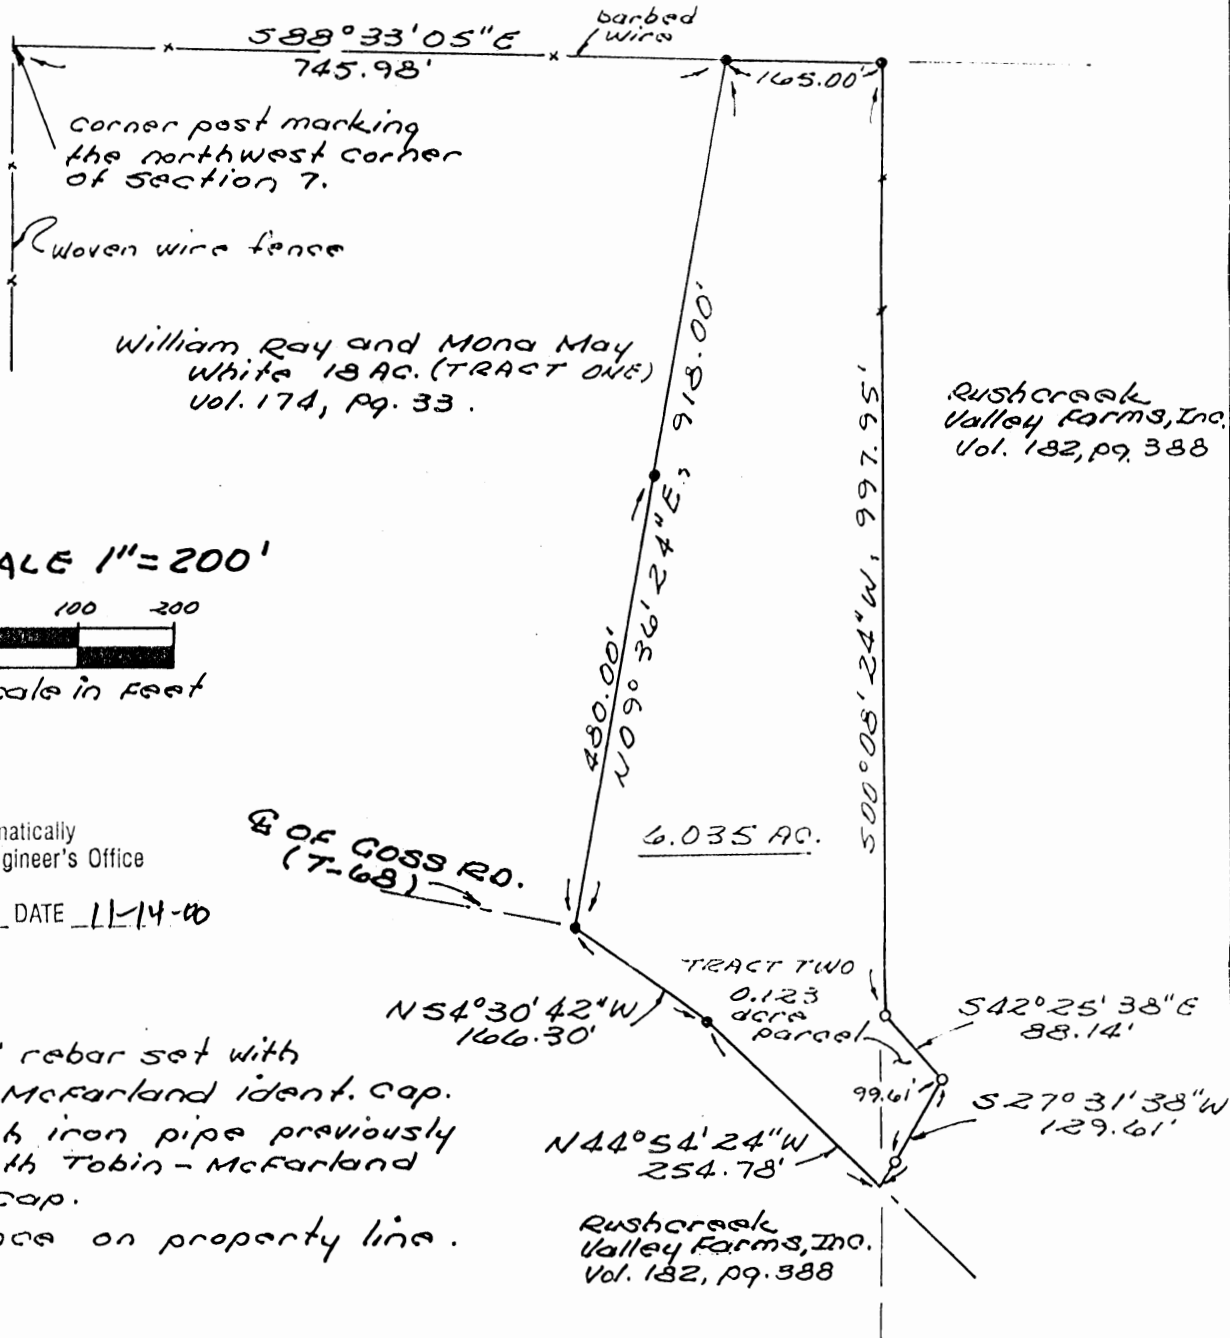 S88°33'05"E
745.98'
barbed
wire
165.00'
corner post marking
the northwest corner
of section 7.
woven wire fence
William Ray and Mona May
White 18 AC. (TRACT ONE)
Vol. 174, pg. 33.
Rushcreek
Valley Farms, Inc.
Vol. 182, pg. 388
N09°36'24"E, 918.00'
480.00'
S00°08'24"W, 997.95'
ALE 1"=200'
100 200
cale in Feet
natically
gineer's Office
DATE 11-14-00
℄ OF GOSS RD.
(T-68)
6.035 AC.
TRACT TWO
0.123
acre
parcel
N54°30'42"W
166.30'
S42°25'38"E
88.14'
99.61'
S27°31'38"W
129.61'
N44°54'24"W
254.78'
' rebar set with
McFarland ident. cap.
h iron pipe previously
th Tobin-McFarland
cap.
nce on property line.
Rushcreek
Valley Farms, Inc.
Vol. 182, pg. 388